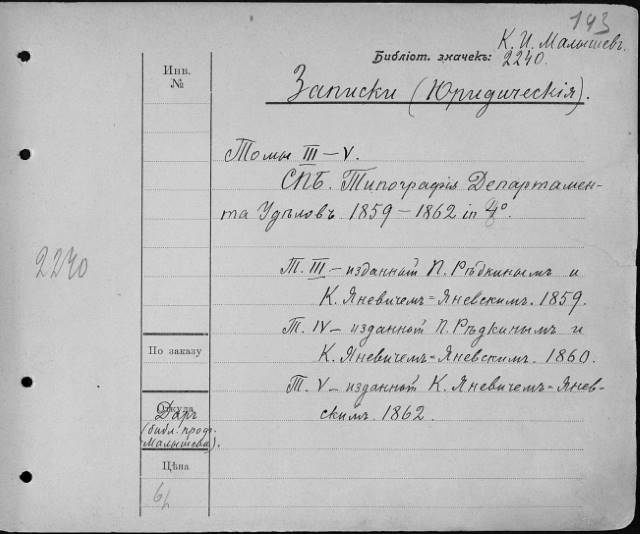 143
К. И. Малышевъ
Библіот. значекъ: 2240.
Инв.
№
Записки (Юридическія).
Томы III – V.
СПБ. Типографія Департамен-
та Удѣловъ 1859 – 1862 in 4°.
2240
Т. III – изданный П. Рѣдкинымъ и
К. Яневичемъ=Яневскимъ. 1859.
Т. IV – изданный П. Рѣдкинымъ и
К. Яневичемъ=Яневскимъ. 1860.
Т. V – изданный К. Яневичемъ=Янев-
скимъ. 1862.
По заказу
Откуда
Даръ
(библ. проф.
Малышева).
Цѣна